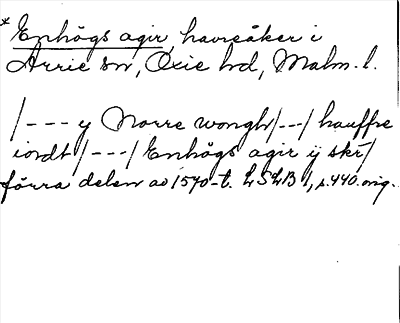 * Enhögs agir, havreåker i
Arrie sn, Oxie hd, Malm. l.
/--- y Norre wongh/---/ hauffre
iordt/---/ Enhögs agir ij skr/
förra delen av 1570-t. LSLB 1, s. 440. orig.